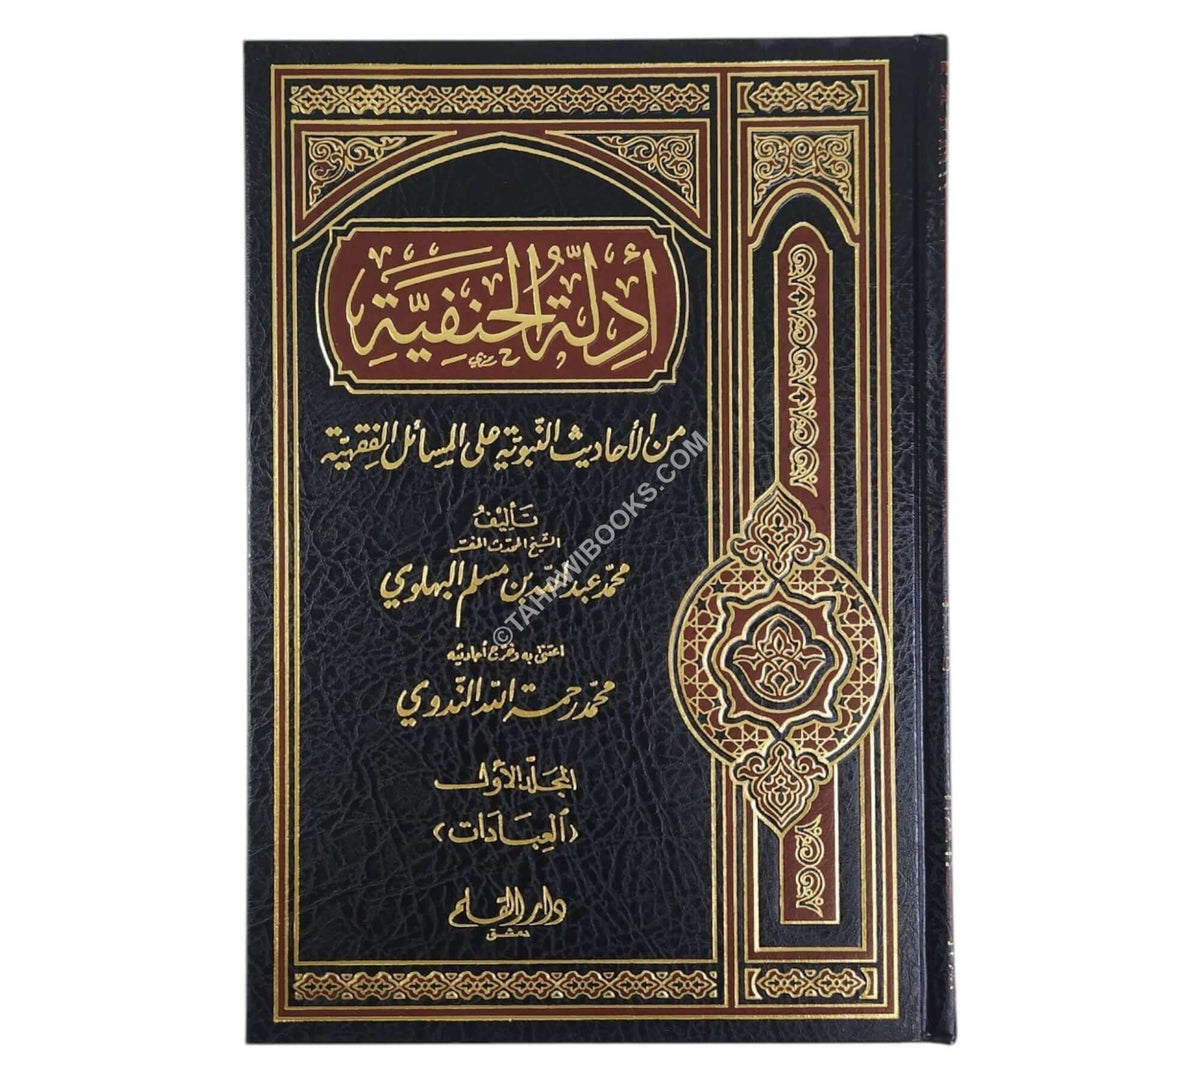 أدِلَّةُ الحَنَفِيَّةِ
من الأحاديث النبوية على المسائل الفقهية
تأليف
الشيخ المحدث المفسر
محمد عبد الله بن مسلم البهلوي
اعتنى به وخرج أحاديثه
محمد رحمة الله الندوي
المجلد الأول
(العبادات)
دار القلم
دمشق
©TAHAWIBOOKS.COM